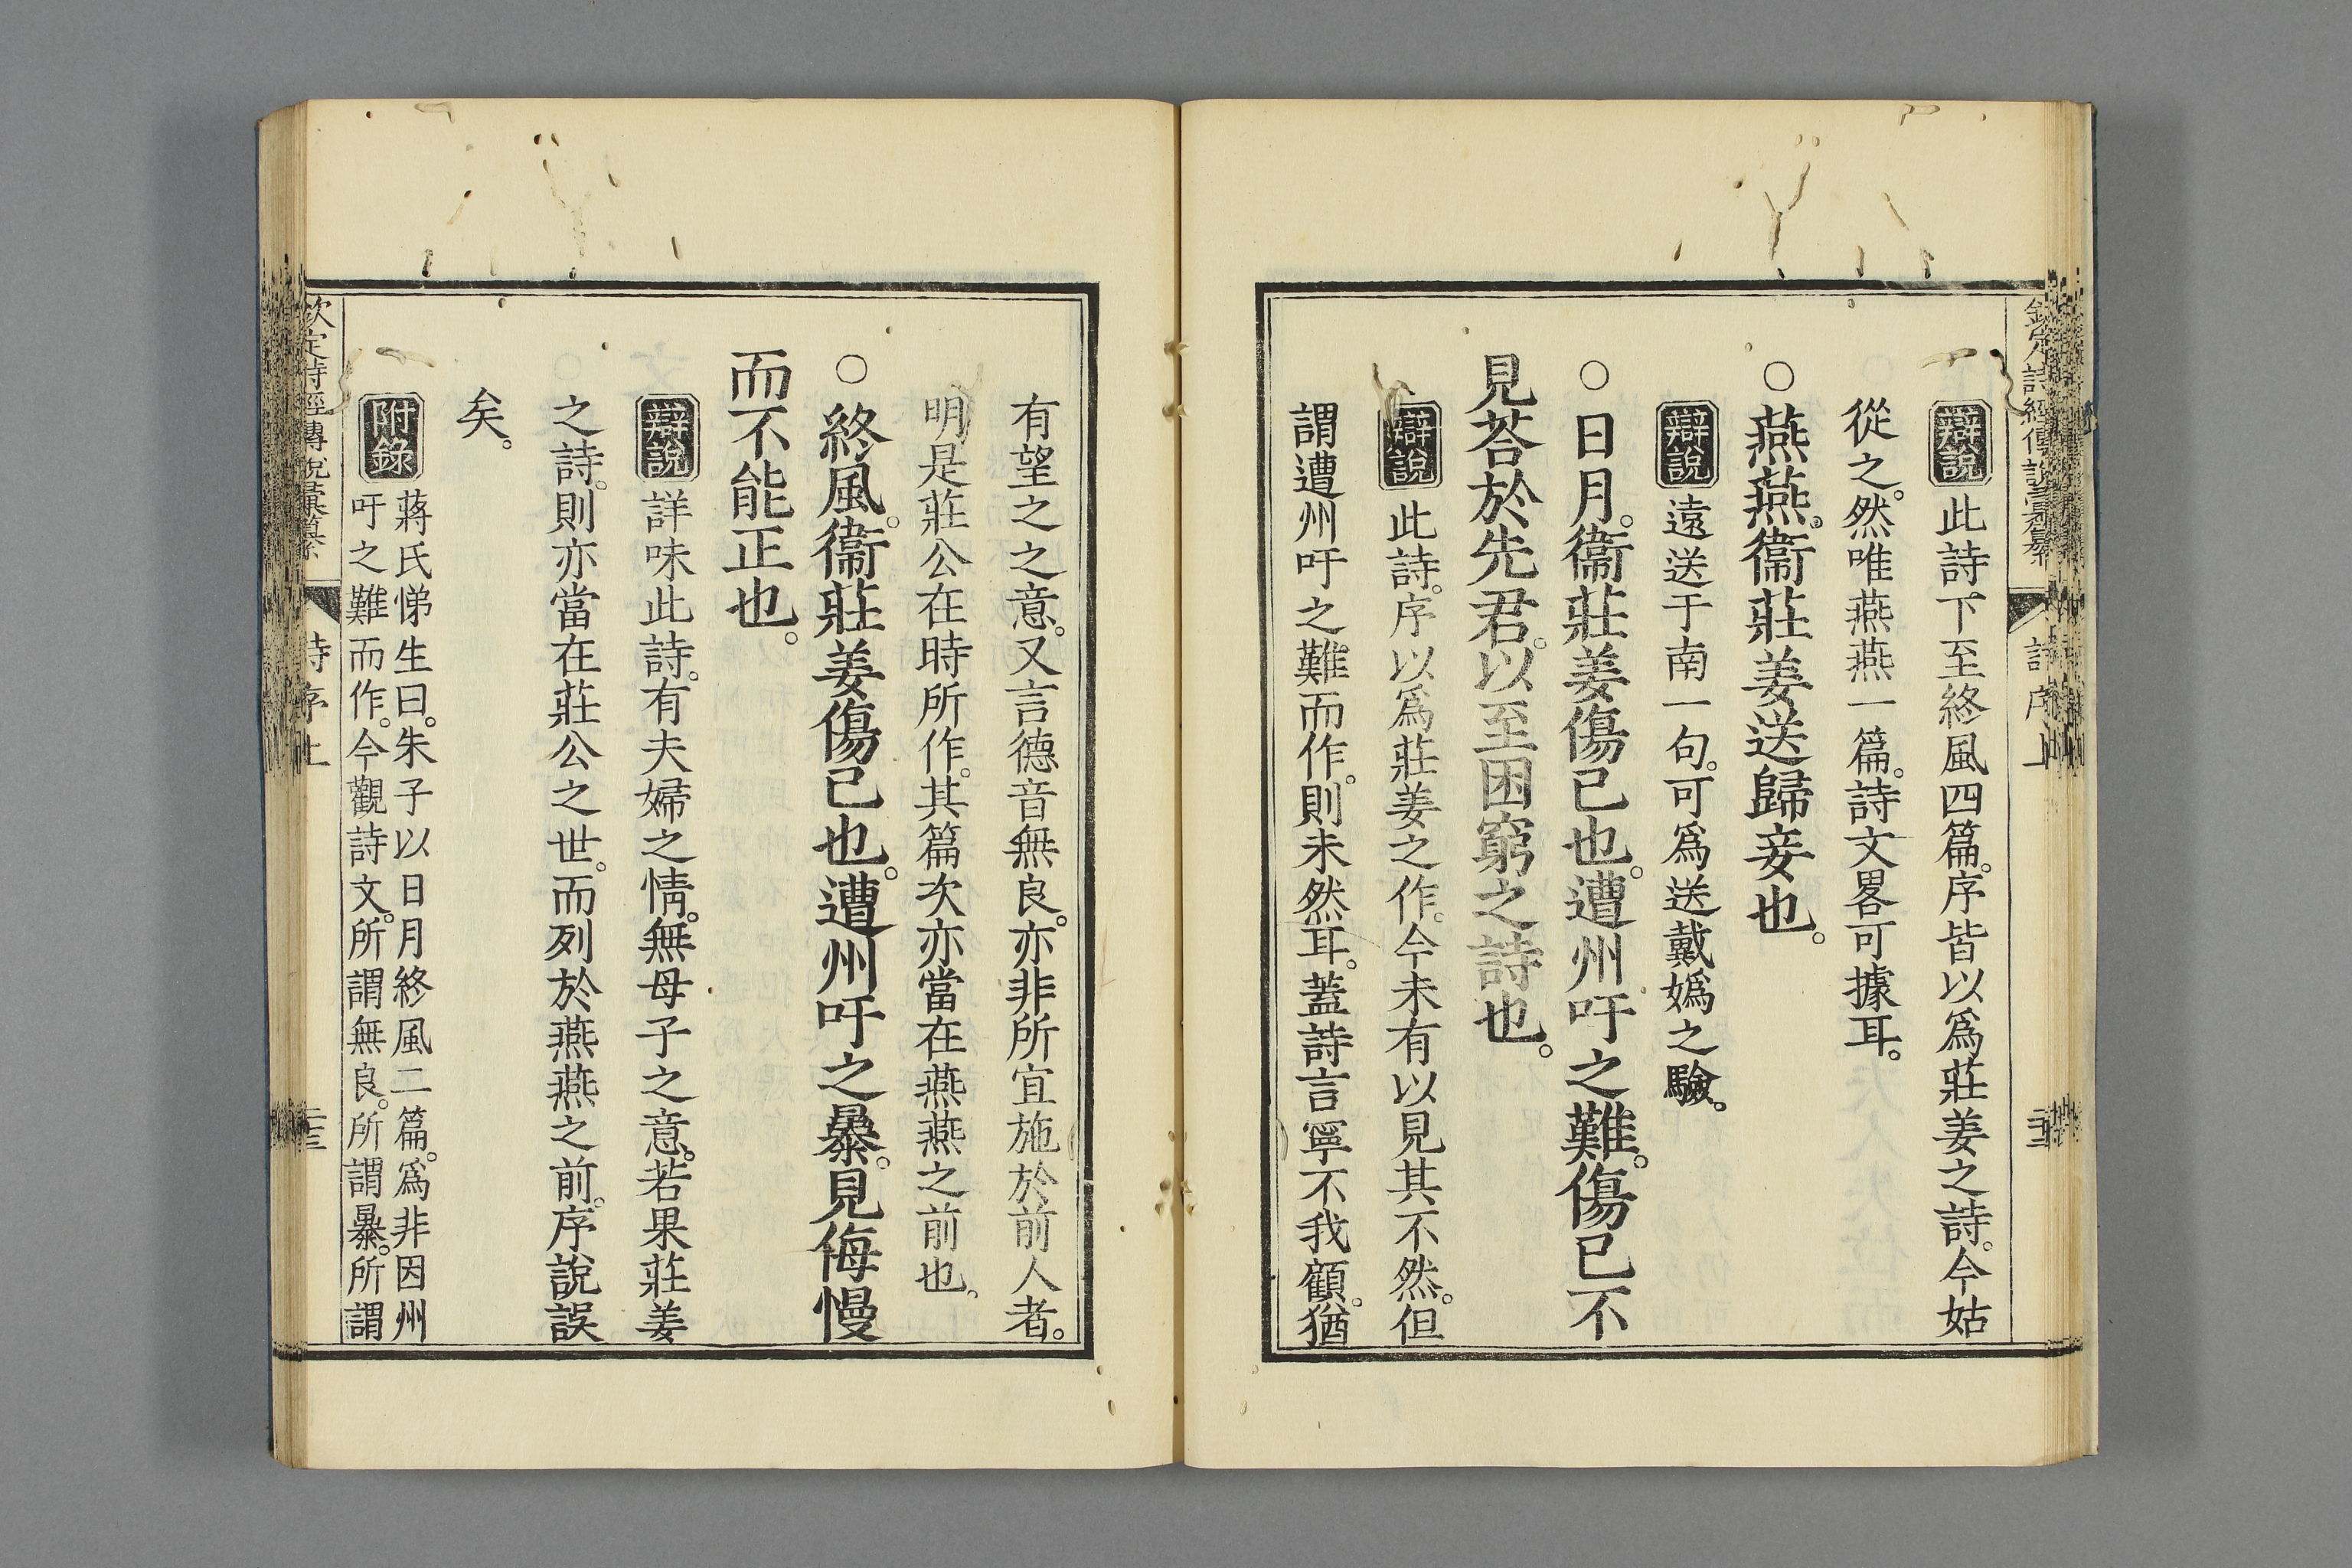 欽定詩經傳說彙纂 詩序上
辯說 此詩下至終風四篇。序皆以爲莊姜之詩。今姑
從之。然唯燕燕一篇。詩文畧可據耳。
○燕燕。衞莊姜送歸妾也。
辯說 遠送于南一句。可爲送戴嬀之驗。
○日月。衞莊姜傷己也。遭州吁之難。傷己不
見荅於先君。以至困窮之詩也。
辯說 此詩。序以爲莊姜之作。今未有以見其不然。但
謂遭州吁之難而作。則未然耳。蓋詩言寧不我顧。猶
有望之之意。又言德音無良。亦非所宜施於前人者。
明是莊公在時所作。其篇次亦當在燕燕之前也。
○終風。衞莊姜傷己也。遭州吁之暴。見侮慢
而不能正也。
辯說 詳味此詩。有夫婦之情。無母子之意。若果莊姜
之詩。則亦當在莊公之世。而列於燕燕之前。序說誤
矣。
附錄 蔣氏悌生曰。朱子以日月終風二篇。爲非因州
吁之難而作。今觀詩文。所謂無良。所謂暴。所謂
欽定詩經傳說彙纂 詩序上